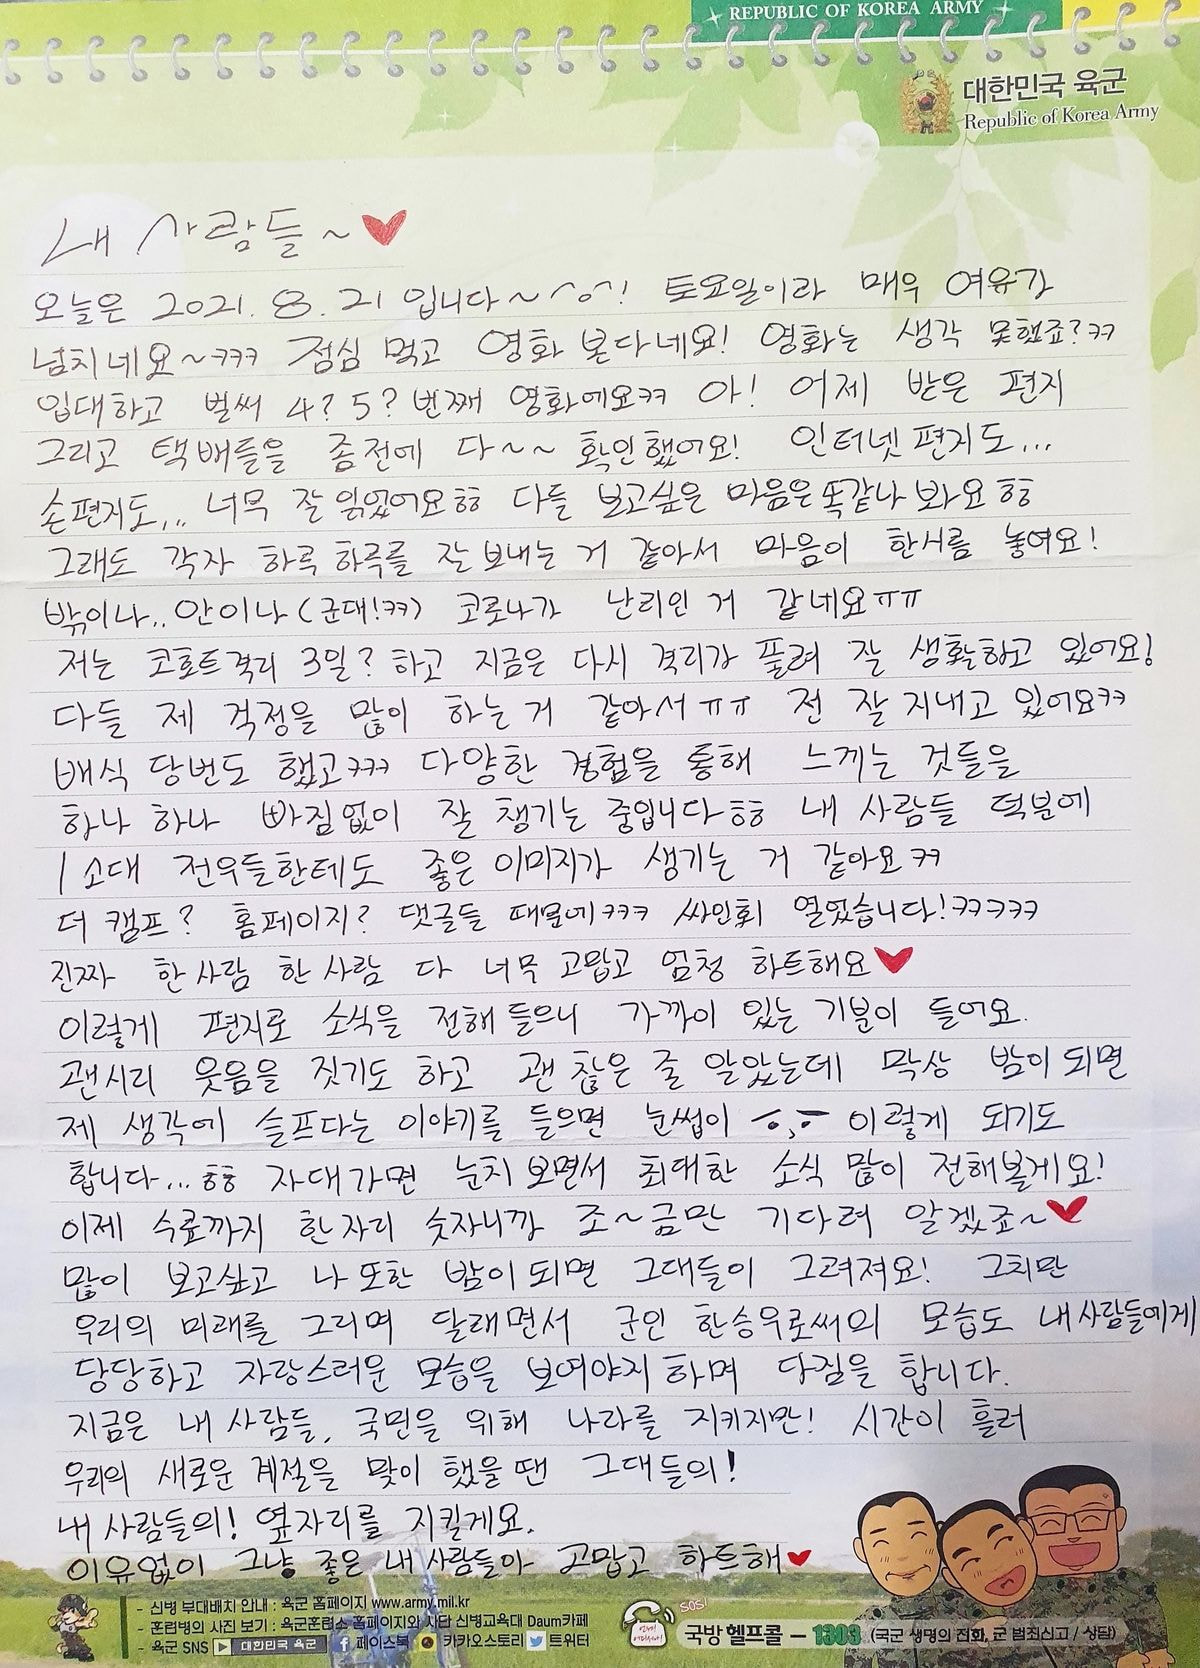 REPUBLIC OF KOREA ARMY
대한민국 육군
Republic of Korea Army
내 사람들~♥
오늘은 2021. 8. 21 입니다~^o^! 토요일이라 매우 여유가
넘치네요~ㅋㅋㅋ 점심 먹고 영화 본다네요! 영화는 생각 못했죠?ㅋㅋ
입대하고 벌써 4? 5? 번째 영화에요ㅋㅋ 아! 어제 받은 편지
그리고 택배들을 좀전에 다~~ 확인했어요! 인터넷 편지도...
손편지도... 너무 잘 읽었어요ㅎㅎ 다들 보고싶은 마음은 똑같나 봐요ㅎㅎ
그래도 각자 하루 하루를 잘 보내는 거 같아서 마음이 한시름 놓여요!
밖이나.. 안이나 (군대!ㅋㅋ) 코로나가 난리인 거 같네요ㅠㅠ
저는 코호트격리 3일? 하고 지금은 다시 격리가 풀려 잘 생활하고 있어요!
다들 제 걱정을 많이 하는 거 같아서ㅠㅠ 전 잘 지내고 있어요ㅋㅋ
배식 당번도 했고ㅋㅋㅋ 다양한 경험을 통해 느끼는 것들을
하나 하나 빠짐없이 잘 챙기는 중입니다ㅎㅎ 내 사람들 덕분에
1소대 전우들한테도 좋은 이미지가 생기는 거 같아요ㅋㅋ
더 캠프? 홈페이지? 댓글들 때문에ㅋㅋㅋ 싸인회 열었습니다!ㅋㅋㅋㅋㅋ
진짜 한 사람 한 사람 다 너무 고맙고 엄청 하트해요♥
이렇게 편지로 소식을 전해 들으니 가까이 있는 기분이 들어요.
괜시리 웃음을 짓기도 하고 괜찮은 줄 알았는데 막상 밤이 되면
제 생각에 슬프다는 이야기를 들으면 눈썹이 이렇게 되기도
합니다...ㅎㅎ 자대가면 눈치 보면서 최대한 소식 많이 전해볼게요!
이제 수료까지 한자리 숫자니까 조~금만 기다려 알겠죠~♥
많이 보고싶고 나 또한 밤이 되면 그대들이 그려져요! 그치만
우리의 미래를 그리며 달래면서 군인 한승우로써의 모습도 내 사람들에게
당당하고 자랑스러운 모습을 보여야지 하며 다짐을 합니다.
지금은 내 사람들, 국민을 위해 나라를 지키지만! 시간이 흘러
우리의 새로운 계절을 맞이 했을 땐 그대들의!
내 사람들의! 옆자리를 지킬게요.
이유없이 그냥 좋은 내 사람들아 고맙고 하트해♥
- 신병 부대배치 안내 : 육군 홈페이지 www.army.mil.kr
- 훈련병의 사진 보기 : 육군훈련소 홈페이지와 사단 신병교육대 Daum카페
- 육군 SNS 대한민국 육군 페이스북 카카오스토리 트위터
SOS!
국방헬프콜 - 1303 (국군 생명의 전화, 군 범죄신고 / 상담)